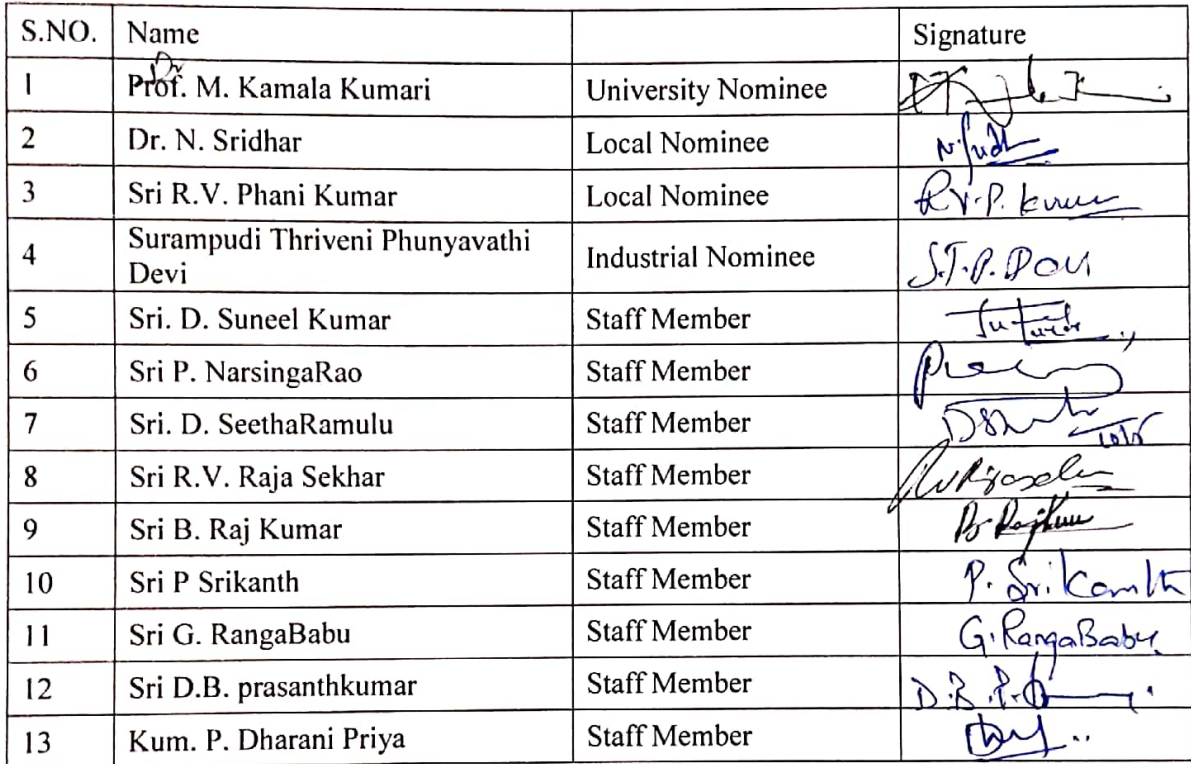 S.NO. Name Signature
Dr
1 Prof. M. Kamala Kumari University Nominee
2 Dr. N. Sridhar Local Nominee N. Sridh
3 Sri R.V. Phani Kumar Local Nominee R.V.P. Kumar
Surampudi Thriveni Phunyavathi
4 Industrial Nominee S.T.P. Devi
Devi
5 Sri. D. Suneel Kumar Staff Member
6 Sri P. NarsingaRao Staff Member
7 Sri. D. SeethaRamulu Staff Member
8 Sri R.V. Raja Sekhar Staff Member
9 Sri B. Raj Kumar Staff Member B. RajKum
10 Sri P Srikanth Staff Member P. Srikanth
11 Sri G. RangaBabu Staff Member G. RangaBabu
12 Sri D.B. prasanthkumar Staff Member D.B.P.
13 Kum. P. Dharani Priya Staff Member